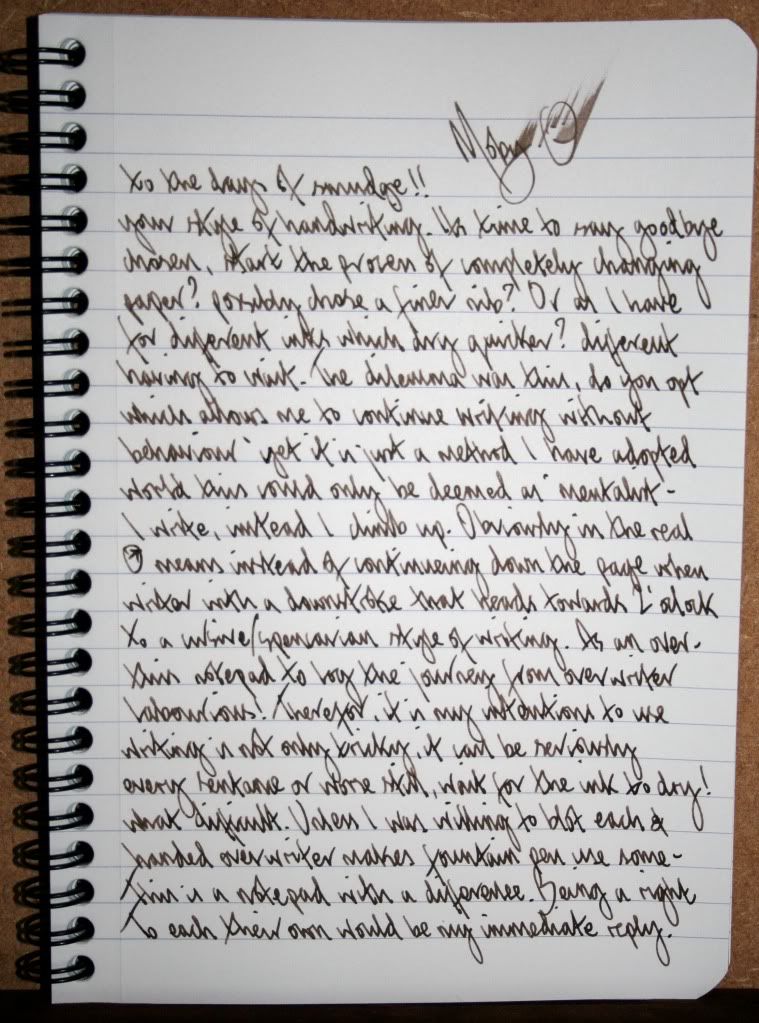 To each their own would be my immediate reply.
This is a notepad with a difference. Being a right
handed overwriter makes fountain pen use some-
what difficult. Unless I was willing to blot each &
every sentance or worse still, wait for the ink to dry!
writing is not only tricky, it can be seriously
labourious! Therefor, it is my intentions to use
this notepad to log the journey from overwriter
to a /spencarian style of writing. As an over-
writer with a downstroke that heads towards 2'oclock
means instead of continueing down the page when
I write, instead I climb up. Obviously in the real
world this could only be deemed as 'mentalist-
behaviour' yet it is just a method I have adopted
which allows me to continue writing without
having to wait. The dilemma was this, do you opt
for different inks which dry quicker? different
paper? possibly chose a finer nib? Or as I have
chosen, start the process of completely changing
your style of handwriting. Its time to say goodbye
to the days of smudge!!
Moby